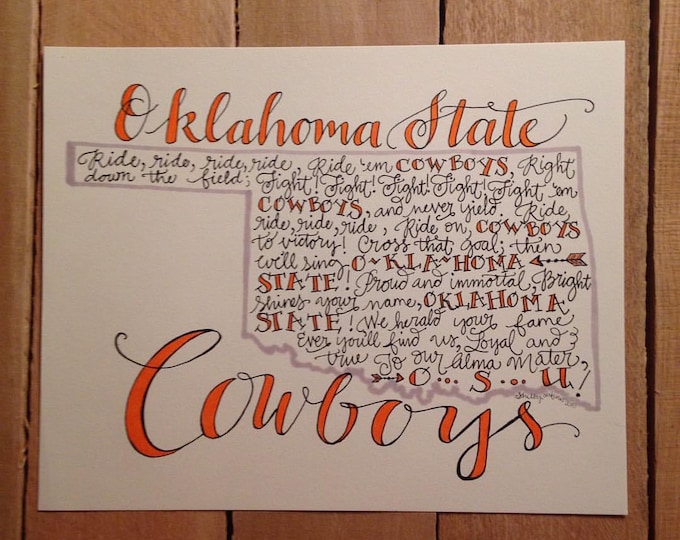 Oklahoma State
Ride, ride, ride, ride, Ride 'em COWBOYS, Right
down the field; Fight! Fight! Fight! Fight! Fight 'em
COWBOYS, and never yield. Ride,
ride, ride, ride, Ride on, COWBOYS
to victory! Cross that goal; then
we'll sing O~KLA~HOMA
STATE! Proud and immortal, Bright
shines your name, OKLAHOMA
STATE! We herald your fame
Ever you'll find us, Loyal and
true To our alma Mater,
O... S... U.!
Cowboys